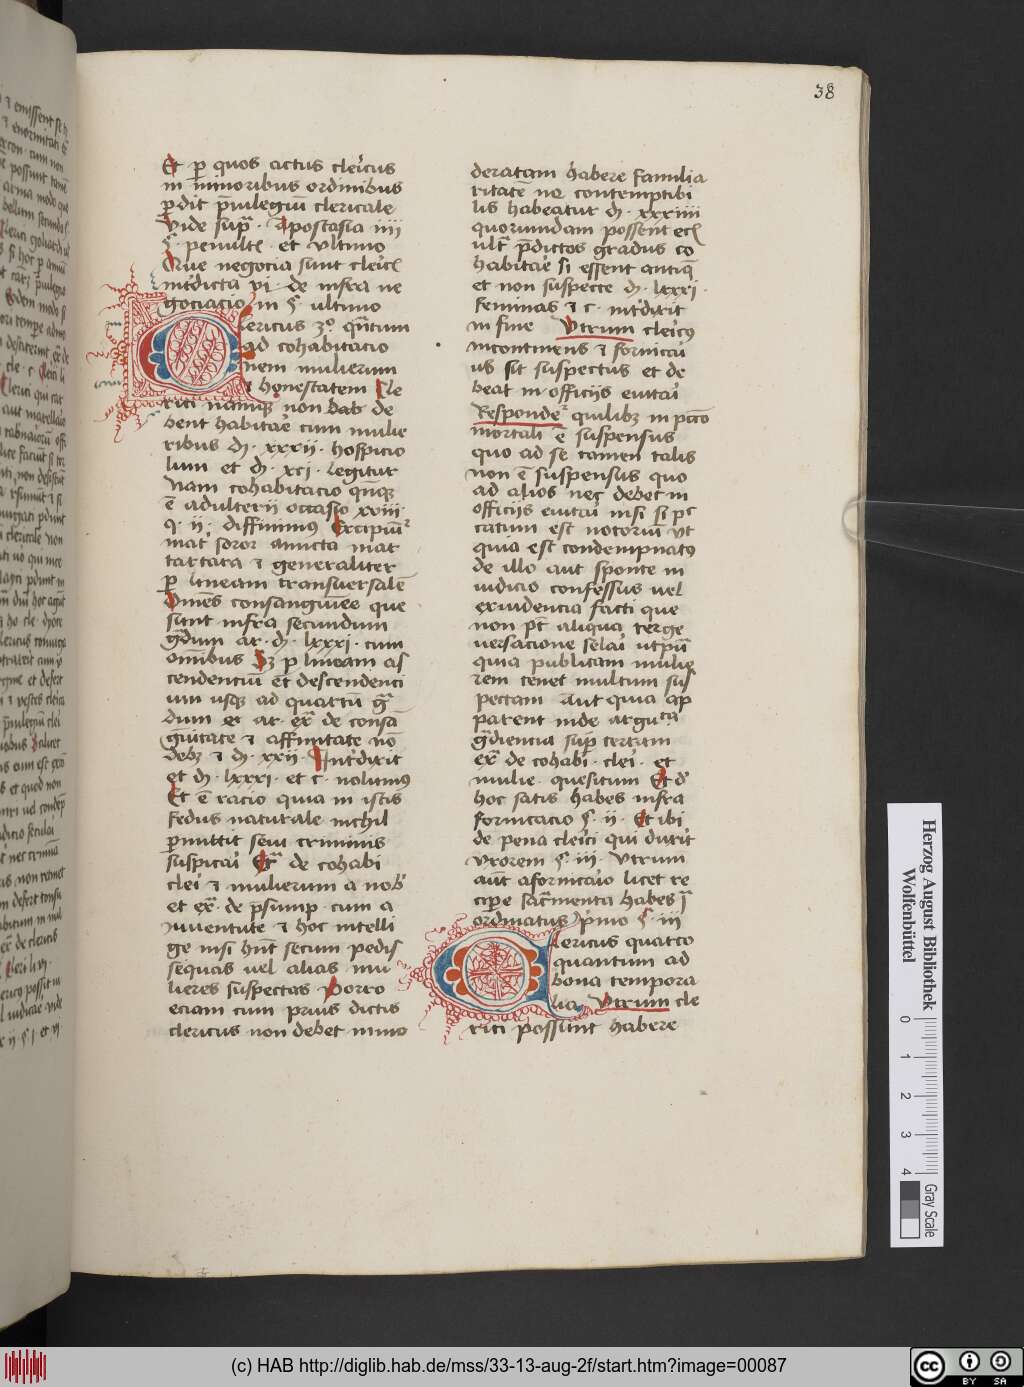 38
Et ꝑ quos actus cleīcus
in minoribus ordinibus
ꝑdit p̄uilegiū clericale
Vide supͣ · Apostasia iiii
§ · penultī · et vltimo
Que negocia sunt cleīcꝭ
int̄dicta vi · de infra ne
gociacio in § · ultimo
Clericus 3º · qͣntum
ad cohabitacio
nem mulierum
⁊ honestatem Cle
rici namqꝫ non hab de
bent habitāe cum mulie
ribus di · xxxii · hospicio
lum et di · xci · legitur
Nam cohabitacio qn̄qꝫ
ē adulterii occasio xxviii ·
q · ii · diffinimꝰ Excipiūt᷑
mat̄ soror amicta mat̄
tartara ⁊ generaliter
ꝑ lineam transuersalē
Om̄es consanguinee que
sunt infra secundum
gͣdum ar · di · lxxxi · cum
om̄ibus Sꝫ ꝑ lineam as
cendenciū et descendenci
um usqꝫ ad quartū gͣ
dum et ar · exͣ de consā
guitate ⁊ affinitate nō
debꝫ ⁊ di · xxii · Int̄dixit
et di · lxxxi · et c · nolumꝰ
Et ē racio quia in istis
fedus naturale nichil
ꝑmittit seui criminis
suspicāi Exͣ de cohabi
cleī ⁊ mulierum a nob̄
et exͣ · de p̄sump · cum a
iuuentute ⁊ hoc intelli
ge nisi hn̄t secum pedis
sequas uel alias mu
lieres suspectas Porro
eciam cum prius dictis
clericus non debet inmo
deratam habere familia
ritatē ne contemptibi
lis habeatur di · xxxiiii
quorumdam possent ecī
ult̄ p̄dictos gradus co
habitāe si essent antiq̄
et non suspecte di · lxxxi ·
feminas ⁊ c · int̄dixit
in fine Vtrum cleīcꝰ
incontinens ⁊ fornicāi
us sit suspectus et de
beat in officijs euitāi
Responde᷑ quilibꝫ in pctō
mortali ē suspensus
quo ad se tamen talis
non ē suspensus quo
ad alios nec debet in
officijs euitāi nisi si pc
catum est notoriū ut
quia est condempnatꝰ
de illo aut sponte in
iudicio confessus uel
exuidencia facti que
non pt̄ aliqua terge
uersacione selāi utpūt
quia publicam mulie
rem tenet multum sus
pectam Aut quia ap
parent inde argutͣ
gͣdiencia sup̄ certam
exͣ de cohabi · cleī · et
mulie · quesitum Et dͤ
hoc satis habes infra
fornicatio § · ii · Et ibi
de pena cleīci qui duxit
vxorem § · iii · Vtrum
aūt afornicāio licet re
cipe sacͣmenta habes ī
ordinatus pͥmo § · iii
Clericus quarto
quantum ad
bona tempora
lia, Vtrum cle
rici possunt habere
Herzog August Bibliothek
Wolfenbüttel
0 1 2 3 4
Gray Scale
(c) HAB http://diglib.hab.de/mss/33-13-aug-2f/start.htm?image=00087
cc BY SA